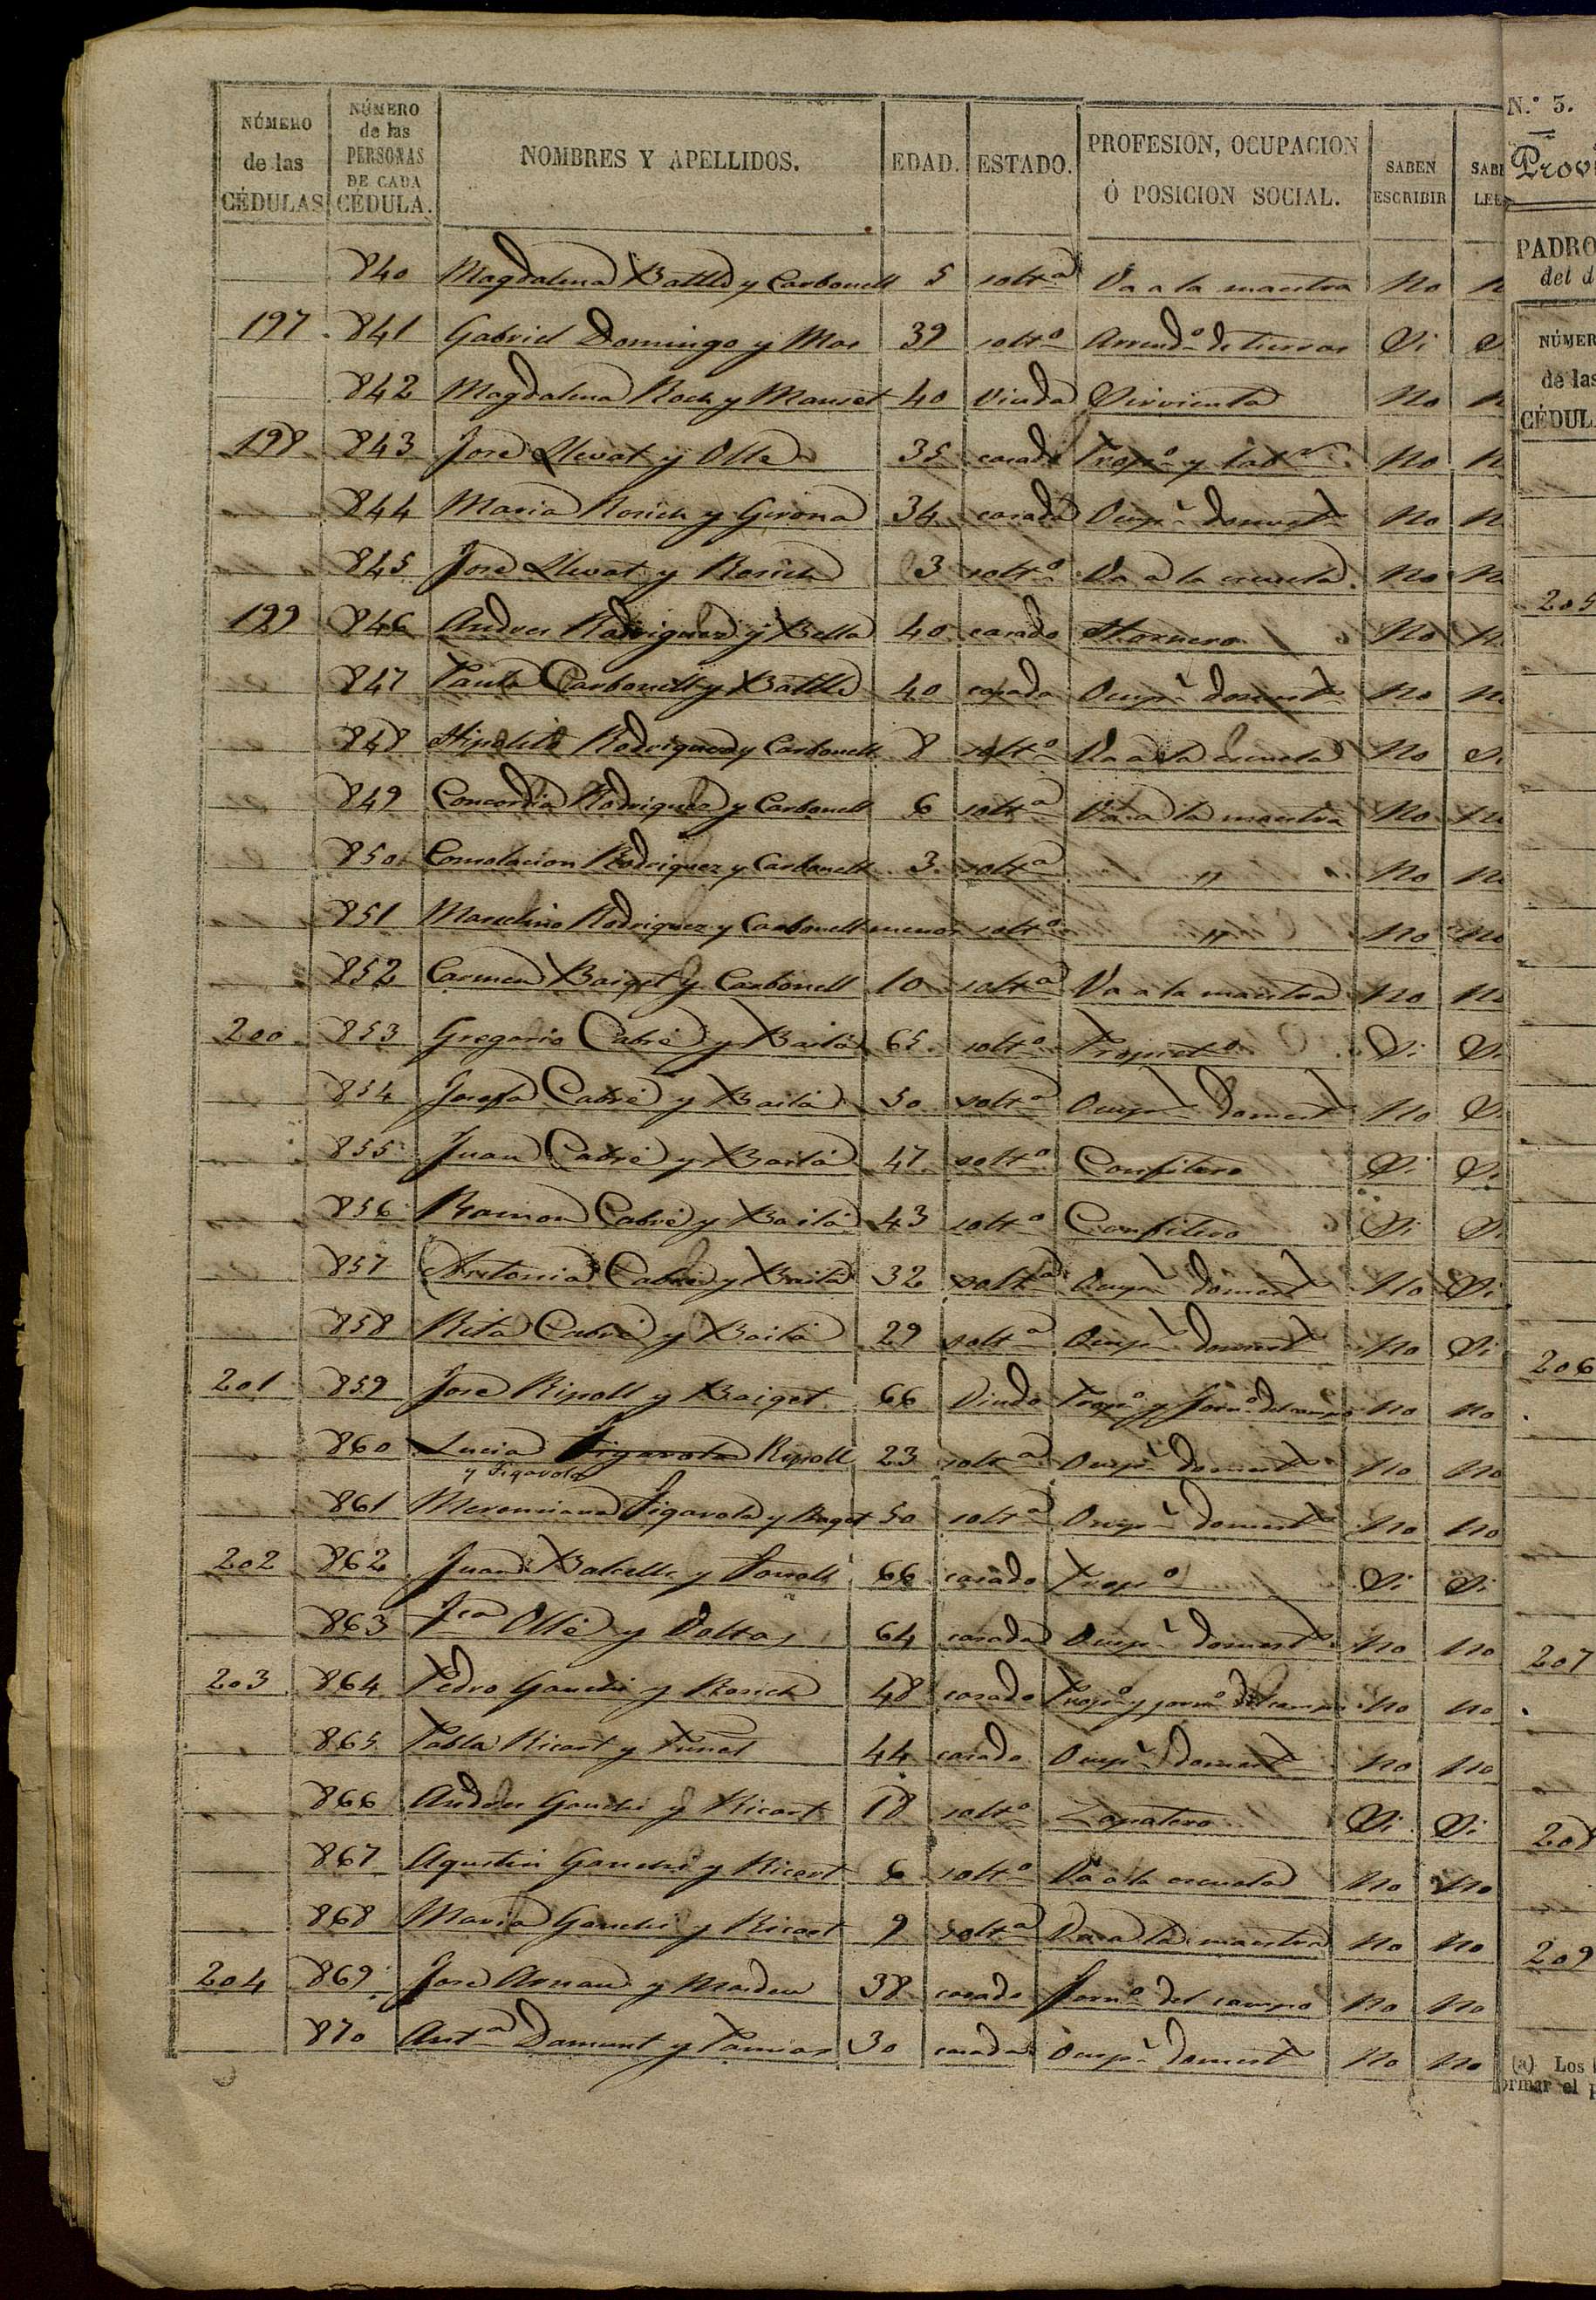 NÚMERO de las CÉDULAS NÚMERO de las PERSONAS DE CADA CÉDULA. NOMBRES Y APELLIDOS. EDAD. ESTADO. PROFESION, OCUPACION Ó POSICION SOCIAL. SABEN ESCRIBIR
840 Magdalena Batlle y Carbonell 5 solt.a Va a la maestra No
197 841 Gabriel Domingo y Mas 39 solt.o Arrend.o de tierras Si
842 Magdalena Roch y Manset 40 Viuda Sirvienta No
198 843 Jose Llevat y Olle 35 casado Prop.o y lab.r No
844 Maria Rosich y Girona 34 casada Ocup.n domest.a No
845 Jose Llevat y Rosich 3 solt.o Va a la escuela No
199 846 Andres Rodriguez y Bella 40 casado Hornero No
847 Paula Carbonell y Batlle 40 casada Ocup.n domest.a No
848 Hipolito Rodriguez y Carbonell 8 solt.o Va a la escuela No
849 Concordia Rodriguez y Carbonell 6 solt.a Va a la maestra No
850 Consolacion Rodriguez y Carbonell 3 solt.a " No
851 Marcelino Rodriguez y Carbonell menor solt.o " No No
852 Carmen Baiget y Carbonell 10 solt.a Va a la maestra No No
200 853 Gregorio Cabré y Bailá 65 solt.o Propiet.o Si Si
854 Josefa Cabré y Bailá 50 solt.a Ocup.n domest. No Si
855 Juan Cabré y Bailá 47 solt.o Confitero Si Si
856 Ramon Cabré y Bailá 43 solt.o Confitero Si Si
857 Antonia Cabré y Bailá 32 solt.a Ocup.n domest. No Si
858 Rita Cabré y Bailá 29 solt.a Ocup.n domest. No Si
201 859 Jose Ripoll y Baiget 66 Viudo Prop.o y jorn.o del campo No No
860 Lucia Figarola Ripoll 23 solt.a Ocup.n domest. No No
y Figarola
861 Figarola y Baget 50 solt.a Ocup.n domest.a No No
202 862 Juan Balcells y 66 casado Prop.o Si Si
863 Fca Ollé y Voltas 64 casada Ocup.n domest.a No No
203 864 Pedro Ganchi y Rosich 48 casado Prop.o y jorn.o del campo No No
865 Pabla Ricart y 44 casada Ocup.n domest. No No
866 Andres Ganchi y Ricart 18 solt.o Zapatero Si Si
867 Agustin Ganchi y Ricart 6 solt.o Va a la escuela No No
868 Maria Ganchi y Ricart 9 solt.a Va a la maestra No No
204 869 Jose Arnau y 38 casado Jorn.o del campo No No
870 Ant.a Damunt y 30 casada Ocup.n domest. No No
N.º 3.
Provi
PADRO
del d
NÚMER
de las
CÉDUL
205
206
207
208
209
(a) Los
ormar el p